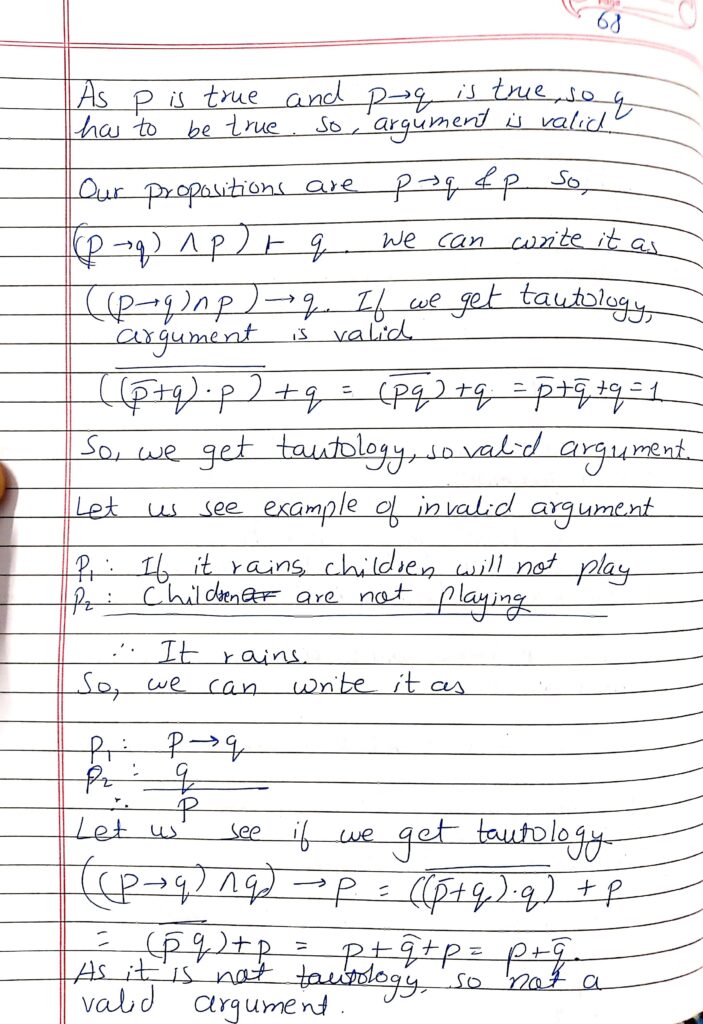 68
As p is true and p→q is true, so q
has to be true. So, argument is valid.
Our propositions are p→q & p. So,
(p→q) ∧ p) ⊢ q. We can write it as
((p→q)∧p)→q. If we get tautology,
argument is valid.
(\overline{(p̄+q)·p}) + q = (\overline{pq})+q = p̄+q̄+q=1
So, we get tautology, so valid argument.
Let us see example of invalid argument
P₁: If it rains, children will not play
P₂: Children are not playing
∴ It rains.
So, we can write it as
P₁: P→q
P₂: q
∴ P
Let us see if we get tautology
((P→q)∧q)→P = (\overline{(p̄+q)·q}) + P
= (\overline{p̄ q})+p = p+q̄+p = p+q̄.
As it is not tautology, so not a
valid argument.